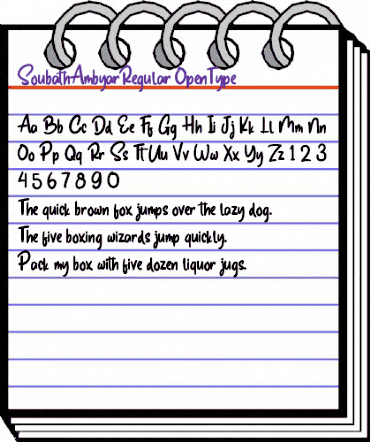 SoubathAmbyar Regular OpenType
Aa Bb Cc Dd Ee Ff Gg Hh Ii Jj Kk Ll Mm Nn
Oo Pp Qq Rr Ss Tt Uu Vv Ww Xx Yy Zz 1 2 3
4 5 6 7 8 9 0
The quick brown fox jumps over the lazy dog.
The five boxing wizards jump quickly.
Pack my box with five dozen liquor jugs.